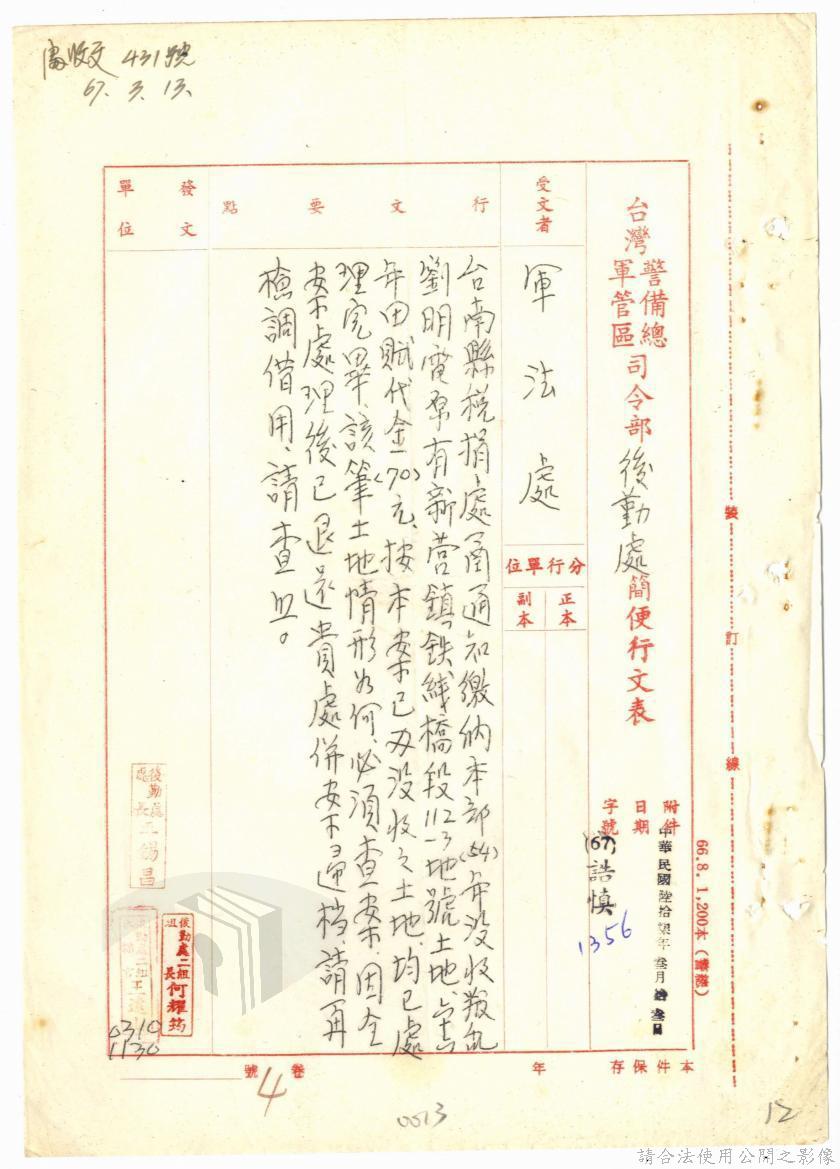 審收文 431號
67. 3. 13.
裝訂線
66.8. 1,200本
台灣警備總軍管區司令部後勤處簡便行文表
附件
日期 中華民國陸拾柒年叁月拾叁日
字號 (67)誥慎1356
受文者 軍法處
分行單位
正本
副本
行文要點
台南縣稅捐處函通知繳納本部(54)年沒收叛亂
劉明電原有新营鎮鉄線橋段112-3地號土地
年田賦代金(170)元、按本案已办沒收之土地、均已處
理完畢、該筆土地情形为何、必須查案、因全
案處理後已退還貴處併案歸档、請再
檢調借用、請查照。
發文單位
後勤處處長王錫昌
後勤處二組組長何耀筠
0310
1130
本件保存 年
卷 4 號
0013
12
請合法使用公開之影像